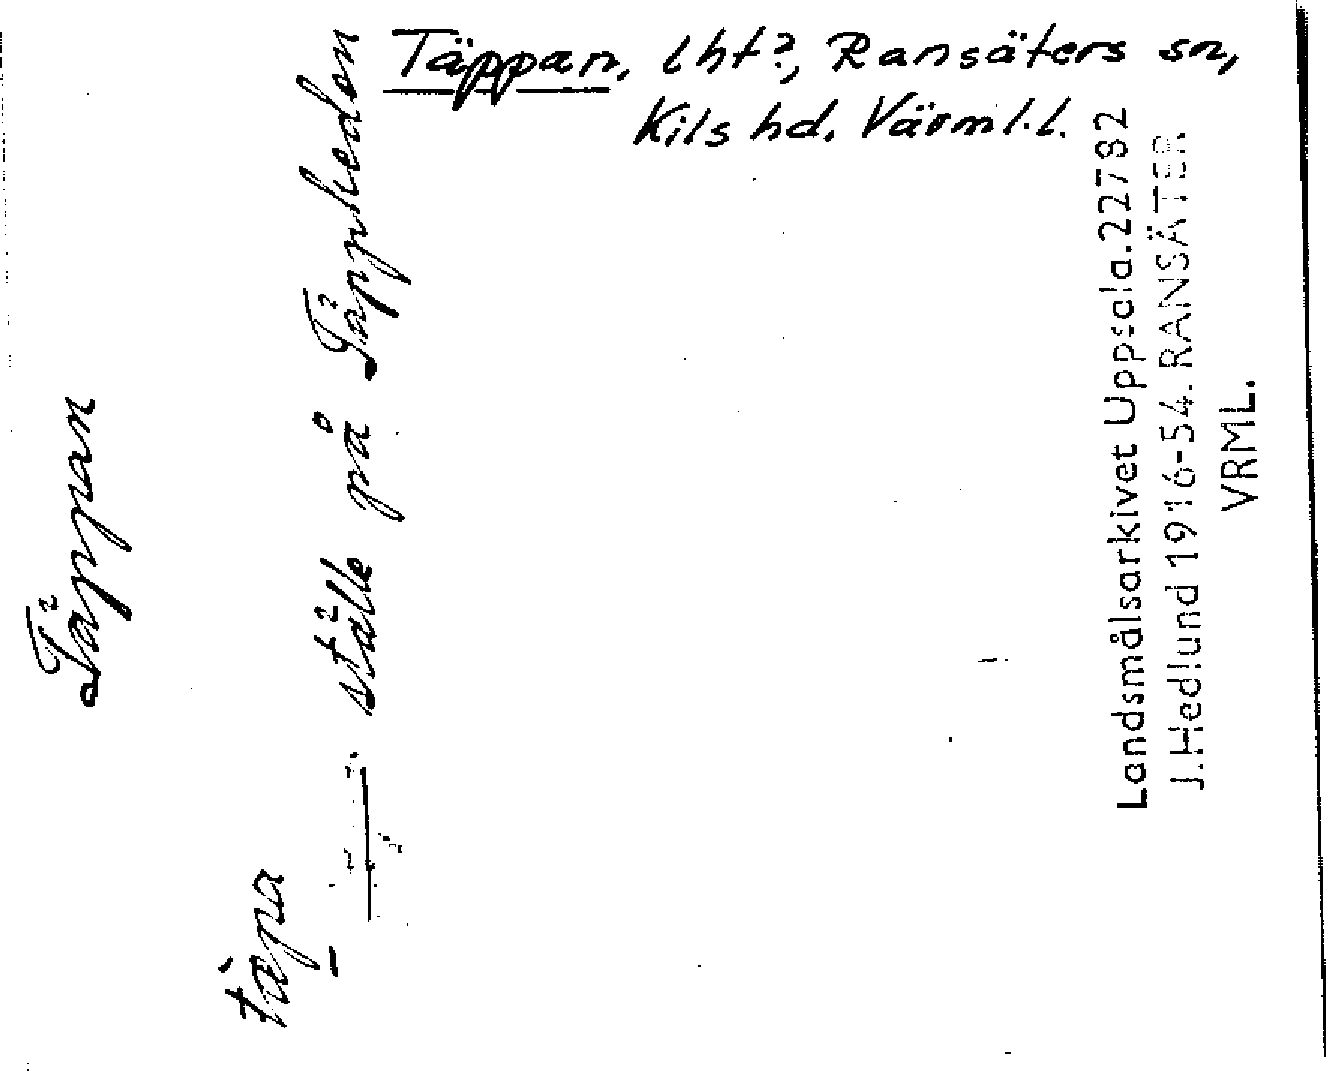 Täppan, lht?, Ransäters sn,
Kils hd. Värml.l.
Täppan
tæ̀pa
ställe på Täppheden
Landsmålsarkivet Uppsala.22782
J.Hedlund 1916-54. RANSÄTER
VRML.